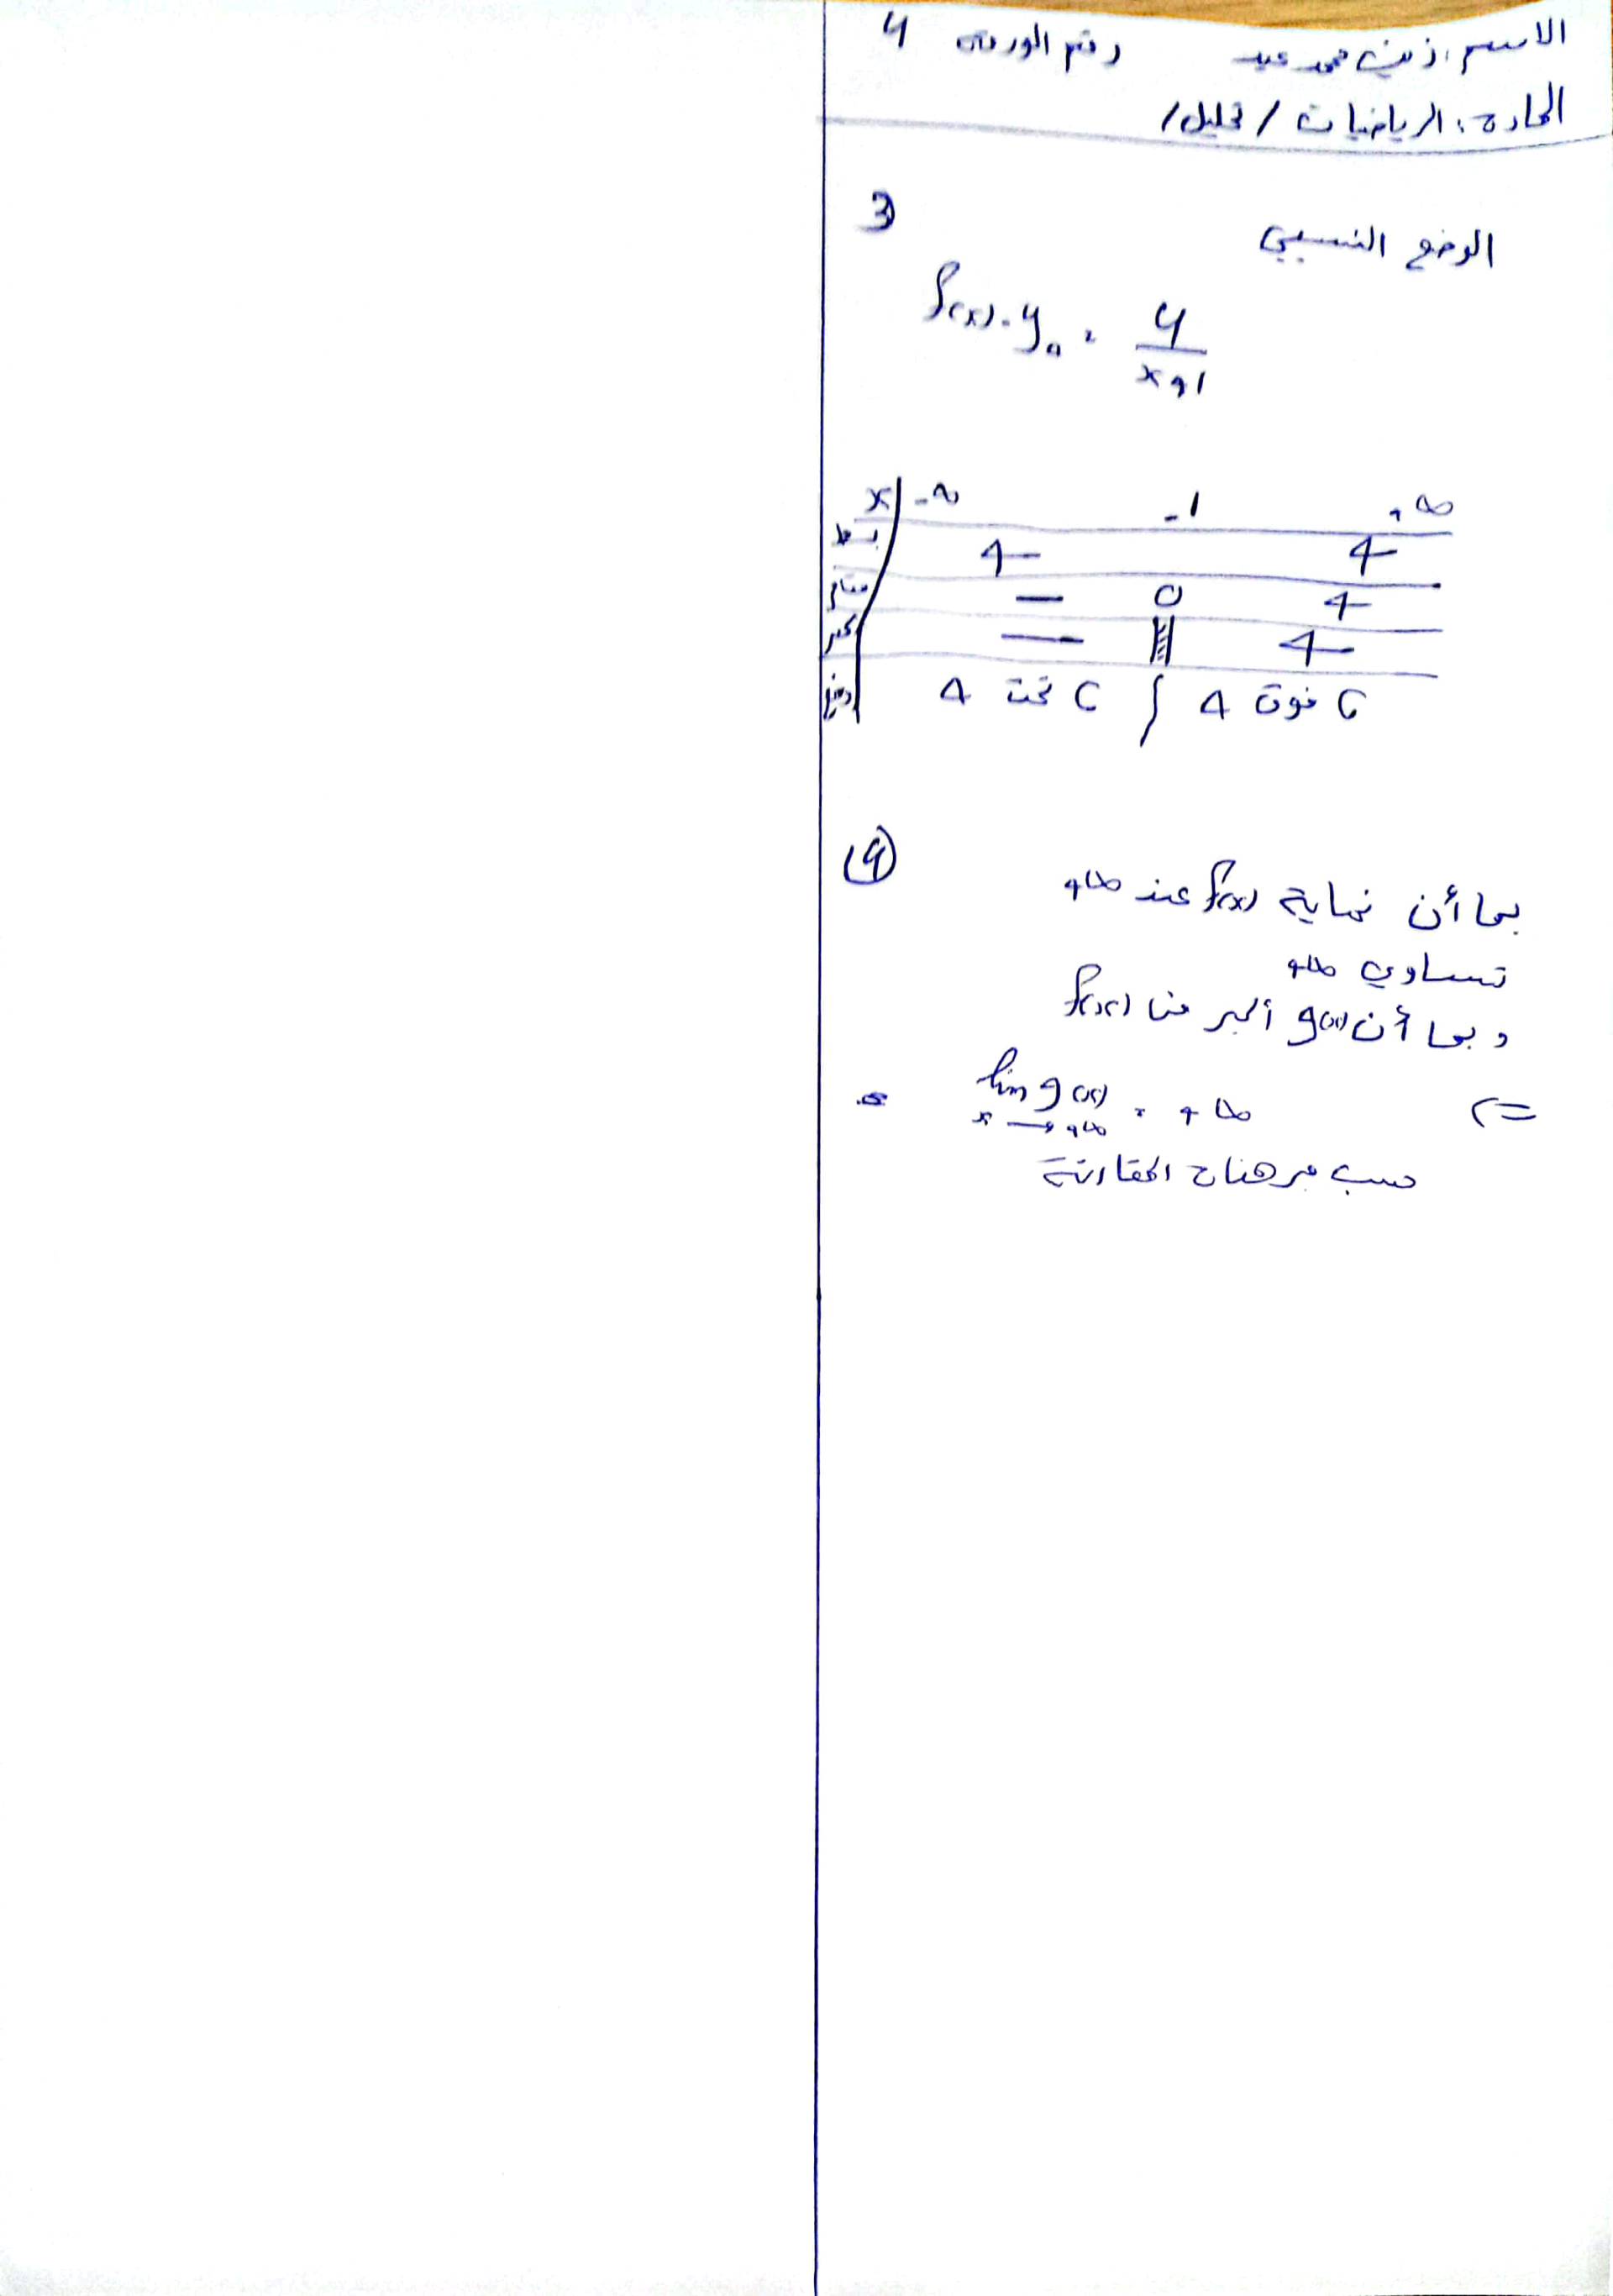 الاسم: زينب محمد عيد رقم الورقة 4
المادة: الرياضيات / تحليل /
3
الوضع النسبي
f(x) - y_Δ = 4/(x+1)
x | -∞ -1 +∞
بسط | + +
مقام | - 0 +
كسر | - || +
وضع | C تحت Δ | C فوق Δ
(4)
بما أن نهاية f(x) عند +∞
تساوي +∞
وبما أن g(x) أكبر من f(x)
=> lim g(x) = +∞
x → +∞
حسب مبرهنات المقارنة